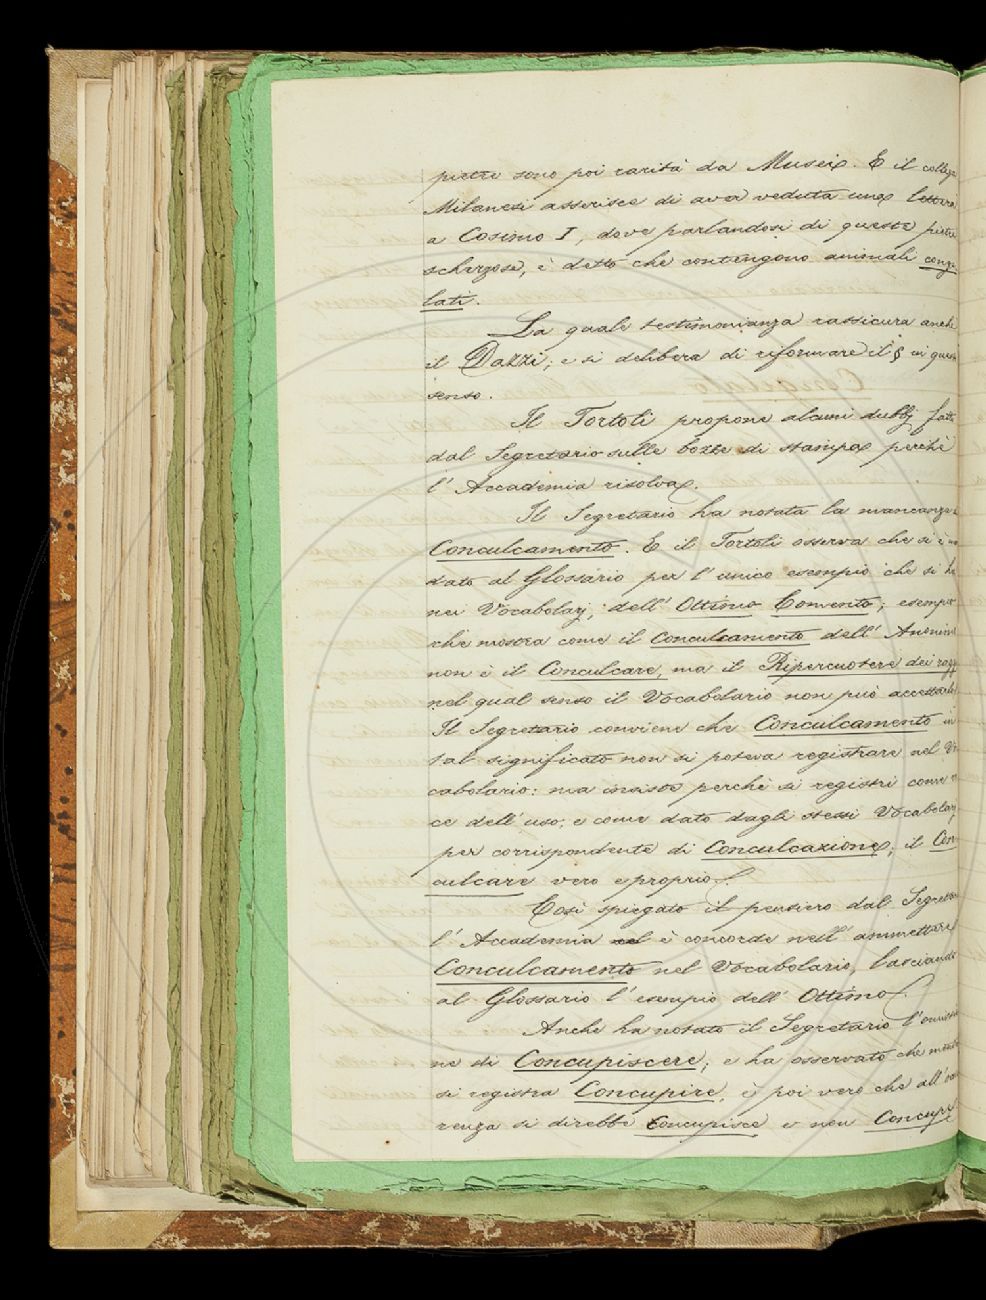 pietre sono poi rarità da Musei. E il collega
Milanesi asserisce di aver veduta una lettera
a Cosimo I, dove parlandosi di queste pietre
scherzose, è detto che contengono animali conge-
lati.
La quale testimonianza rassicura anche
il Dazzi; e si delibera di riformare il § in questo
senso.
Il Tortoli propone alcuni dubbj fatti
dal Segretario sulle bozze di stampa perchè
l'Accademia risolva.
Il Segretario ha notata la mancanza
Conculcamento. E il Tortoli osserva che si è
dato al Glossario per l'unico esempio che si ha
nei Vocabolarj, dell'Ottimo Comento; esempio
che mostra come il Conculcamento dell'Anonimo
non è il Conculcare, ma il Ripercuotere dei raggi
nel qual senso il Vocabolario non può accettarlo
Il Segretario conviene che Conculcamento in
tal significato non si poteva registrare nel Vo
cabolario: ma insiste perchè si registri come vo
ce dell'uso, e come dato dagli stessi Vocabolarj
per corrispondente di Conculcazione, il Con
culcare vero e proprio.
Così spiegato il pensiero dal Segretario
l'Accademia è concorde nell'ammettere
Conculcamento nel Vocabolario, lasciando
al Glossario l'esempio dell'Ottimo.
Anche ha notato il Segretario l'omissio
ne di Concupiscere; e ha osservato che mentre
si registra Concupire, è poi vero che all'occor
renza si direbbe Concupisce e non Concupe